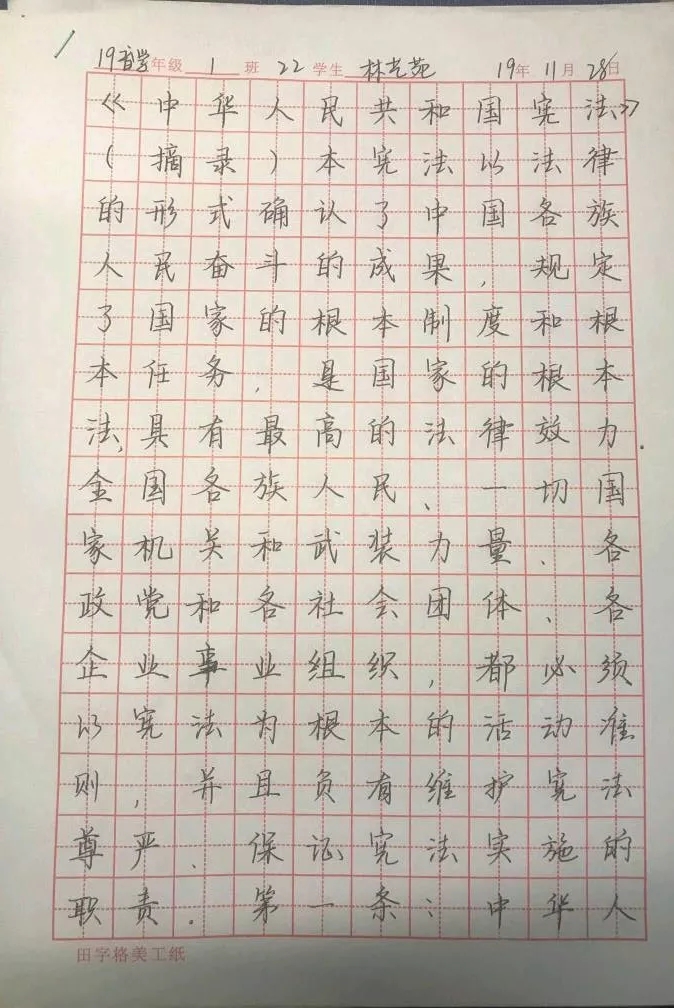 19音学年级 1 班 22 学生 林艺苑 19年 11月 28日
《中华人民共和国宪法》
（摘录）本宪法以法律
的形式确认了中国各族
人民奋斗的成果，规定
了国家的根本制度和根
本任务，是国家的根本
法，具有最高的法律效力.
全国各族人民、一切国
家机关和武装力量、各
政党和各社会团体、各
企业事业组织，都必须
以宪法为根本的活动准
则，并且负有维护宪法
尊严、保证宪法实施的
职责.第一条：中华人
田字格美工纸